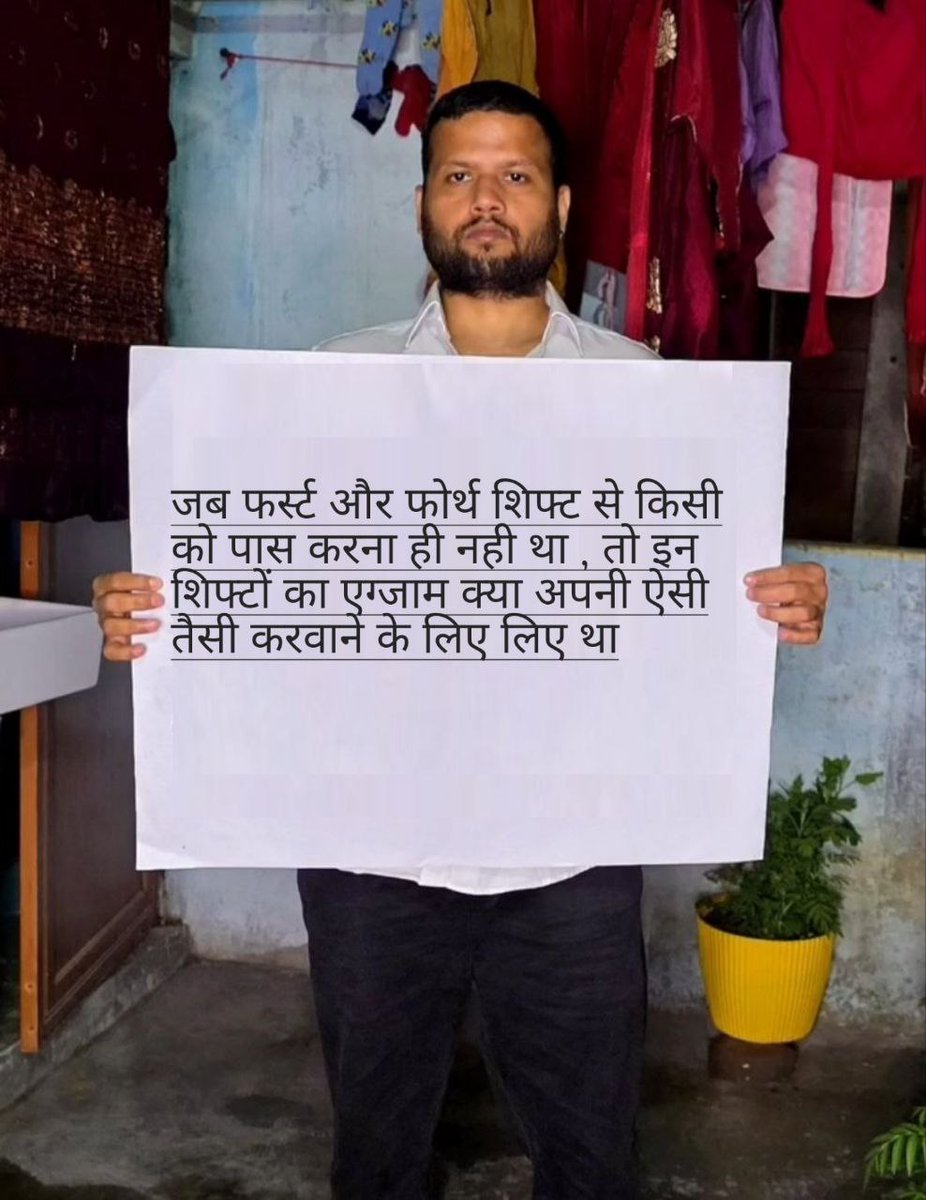 जब फर्स्ट और फोर्थ शिफ्ट से किसी
को पास करना ही नही था , तो इन
शिफ्टों का एग्जाम क्या अपनी ऐसी
तैसी करवाने के लिए लिए था